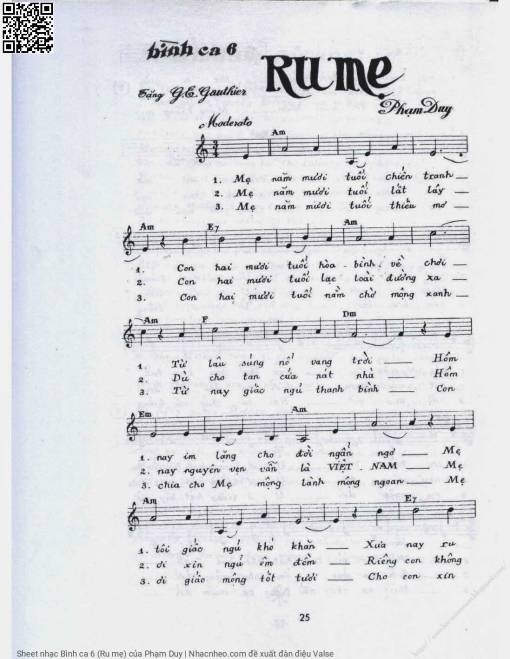 bình ca 6
RU MẸ
Tặng G.E. Gauthier
Phạm Duy
Moderato
Am
1. Mẹ năm mươi tuổi chiến tranh
2. Mẹ năm mươi tuổi lắt lây
3. Mẹ năm mươi tuổi thiếu mơ
Am E7 Am
1. Con hai mươi tuổi hòa bình về chơi
2. Con hai mươi tuổi lạc loài đường xa
3. Con hai mươi tuổi nằm chờ mộng xanh
Am F Dm
1. Từ lâu súng nổ vang trời Hôm
2. Dù cho tan cửa nát nhà Hôm
3. Từ nay giấc ngủ thanh bình Con
Em Am
1. nay im lặng cho đời ngẩn ngơ Mẹ
2. nay nguyên vẹn vẫn là VIỆT NAM Mẹ
3. chia cho Mẹ mộng lành mộng ngoan Mẹ
Am E7
1. tôi giấc ngủ khó khăn Xưa nay ru
2. ơi xin ngủ êm đềm Riêng con không
3. ơi giấc mộng tốt tươi Cho con xin
25
Sheet nhạc Bình ca 6 (Ru mẹ) của Phạm Duy | Nhacnheo.com đề xuất đàn điệu Valse